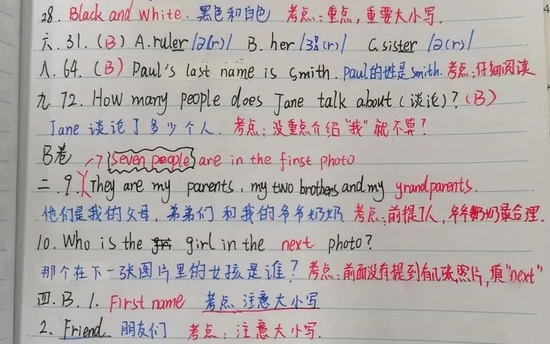 28. Black and white. 黑色和白色 考点：重点，重要大小写.
六. 31. (B) A. ruler /ə(r)/ B. her /ɜː(r)/ C. sister /ə(r)/
八. 64. (B) Paul's last name is Smith. Paul的姓是Smith. 考点：仔细阅读
九. 72. How many people does Jane talk about (谈论)? (B)
Jane 谈论了多少个人. 考点：没重点介绍"我"就不算?
B卷 seven people are in the first photo
二. 9. They are my parents, my two brothers and my grandparents.
他们是我的父母，弟弟们和我的爷爷奶奶 考点：前提7人，爷爷奶奶最合理.
10. Who is the girl in the next photo?
那个在下一张图片里的女孩是谁? 考点：前面没有提到有几张照片，填"next"
四. B. 1. First name 考点 注意大小写
2. Friend 朋友们 考点：注意大小写.